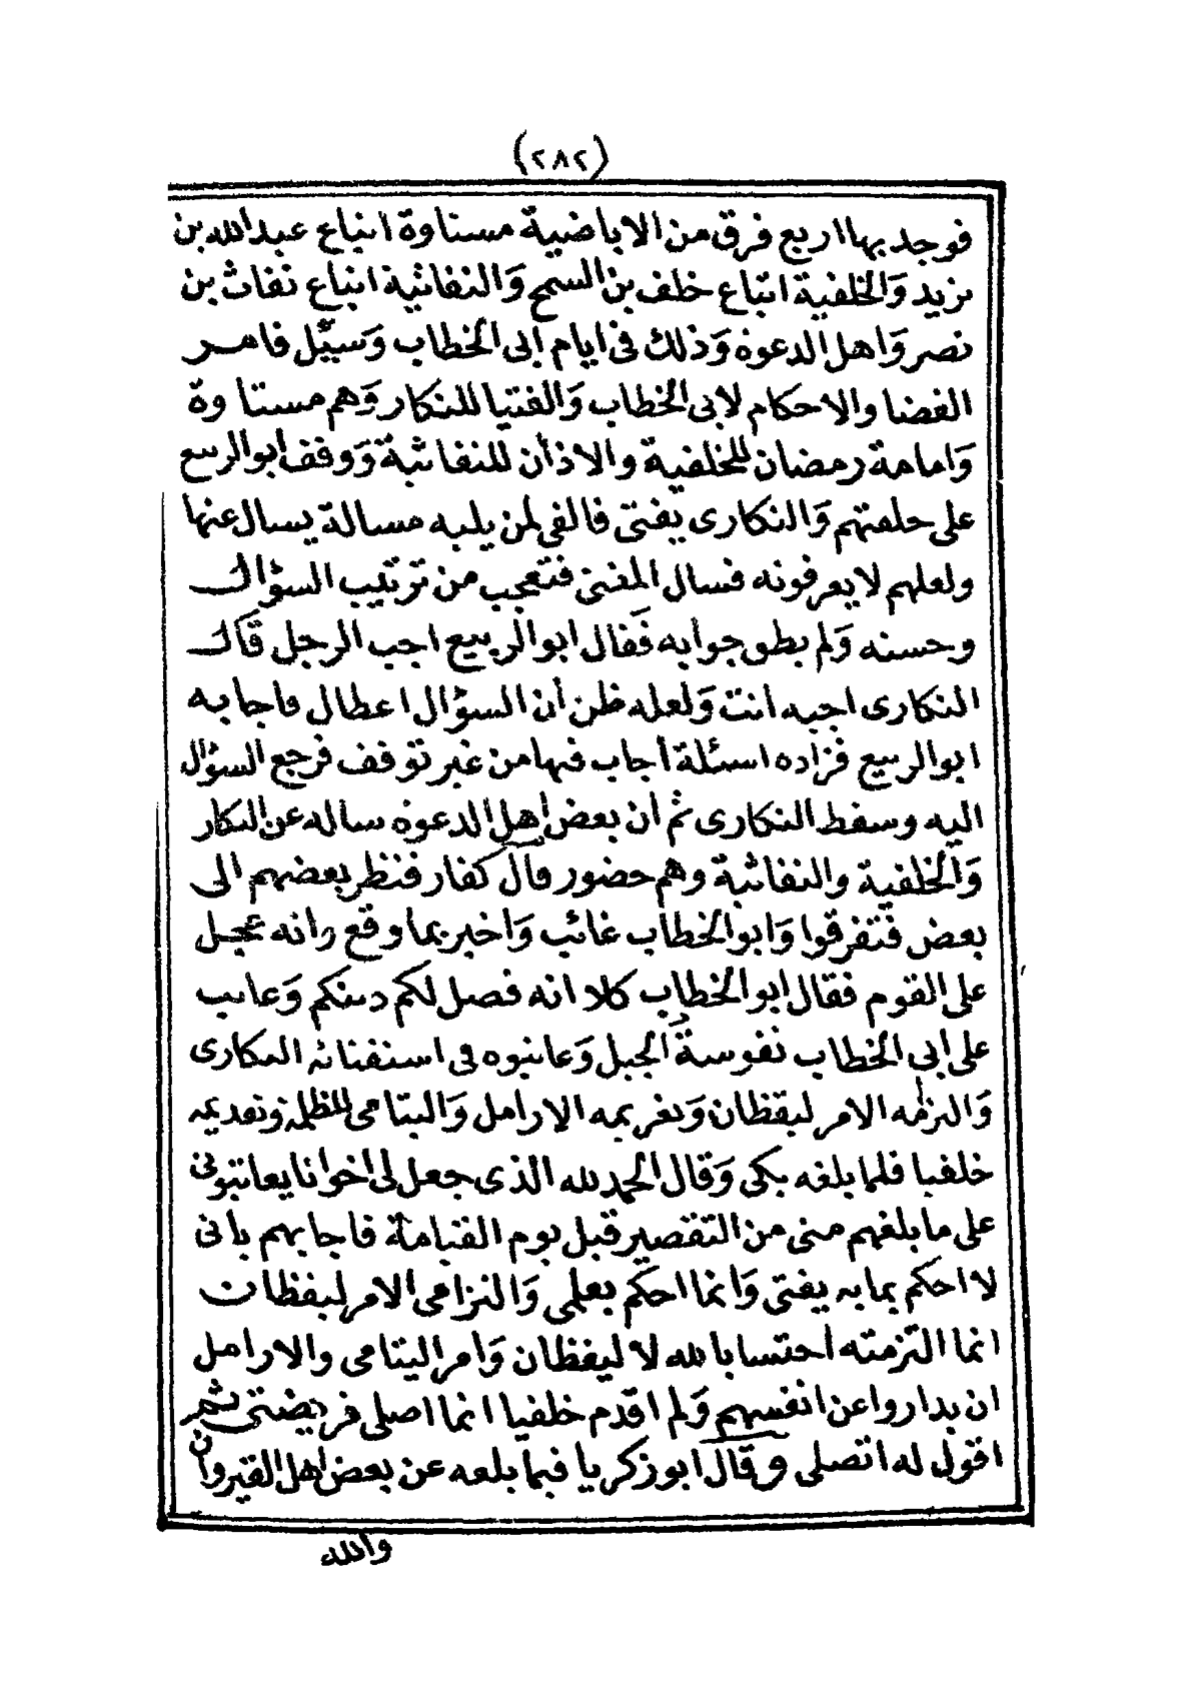 (٢٨٢)
فوجد بها اربع فرق من الاباضية مستاوة اتباع عبدالله بن
يزيد وَالخلفية اتباع خلف بن السمح وَالنفاثية اتباع نفاث بن
نصر وَاهل الدعوة وَذلك فى ايام ابى الخطاب وَسيل فامر
القضا والاحكام لابى الخطاب وَالفتيا للنكار وَهم مستاوة
وَامامة رمضان للخلفية والاذان للنفاثية وَوقف ابوالربيع
على حلقتهم وَالنكارى يفتى فالقى لمن يليه مسالة يسال عنها
ولعلهم لا يعرفونه فسال المفتى فتعجب من ترتيب السؤال
وحسنه وَلم يطق جوابه فَقال ابوالربيع اجب الرجل قَال
النكارى اجبه انت وَلعله ظن أن السؤال اعطال فاجابه
ابوالربيع فزاده اسئلة أجاب فيها من غير توقف فرجع السؤال
اليه وسقط النكارى ثم أن بعض اهل الدعوة ساله عن النكار
وَالخلفية والنفاثية وهم حضور قال كفار فنظر بعضهم الى
بعض فتفرقوا وَابوالخطاب غائب وَاخبر بما وقع وانه عجل
على القوم فقال ابوالخطاب كلا انه فصل لكم دينكم وَعاب
على ابى الخطاب نفوسة الجبل وَعاتبوه فى استفتائه النكارى
وَالتزمه الامر ليقظان وَتغريمه الارامل وَاليتامى للظلمة وتقديمه
خلفيا فلما بلغه بكى وَقال الحمد لله الذى جعل لى اخوانا يعاتبونى
على ما بلغهم منى من التقصير قبل يوم القيامة فاجابهم بانى
لا احكم بما به يفتى وَانما احكم بعلمى وَالتزامى الامر ليقظان
انما التزمته احتسابا لله لا ليقظان وَامر اليتامى والارامل
ان يداروا عن انفسهم وَلم اقدم خلفيا انما اصلى فريضتى ثم
اقول له اتصلى وقال ابو زكريا فيما بلغه عن بعض اهل القيروان
والله